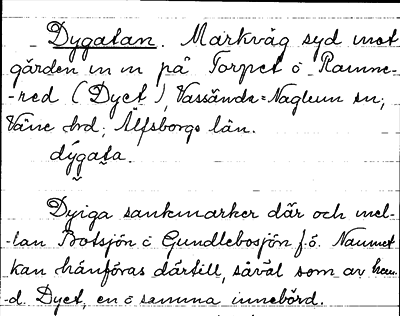 Dygatan. Markväg syd mot
gården m m på Torpet ö Ramne-
-red (Dyet), Vassända=Naglum sn,
Väne hd, Älfsborgs län.
dýgata.
Dyiga sankmarker där och mel-
-lan Bootsjön o Gundlebosjön f.ö. Namnet
kan hänföras därtill, såväl som av
d. Dyet, en o samma innebörd.